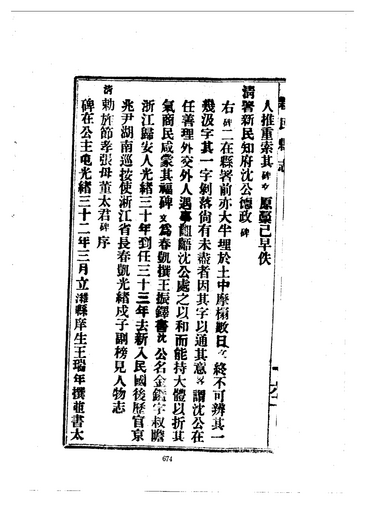 人推重索其碑文原藁已早佚
清署新民知府沈公德政碑
右碑二在縣署前亦大半埋於土中摩搨數日文終不可辨其一
幾沒字其一字剝落尙有未盡者因其字以通其意文謂沈公在
任善理外交外人遇事齟齬沈公處之以和而能持大體以折其
氣商民咸蒙其福碑文爲春凱撰王振鐸書沈公名金鑑字叔瞻
浙江歸安人光緒三十年到任三十三年去新入民國後歷官京
兆尹湖南巡按使浙江省長春凱光緒戍子副榜見人物志
清勅旌節孝張母董太君碑序
碑在公主屯光緒三十二年三月立灘縣庠生王瑞年撰並書太
新民縣志
674